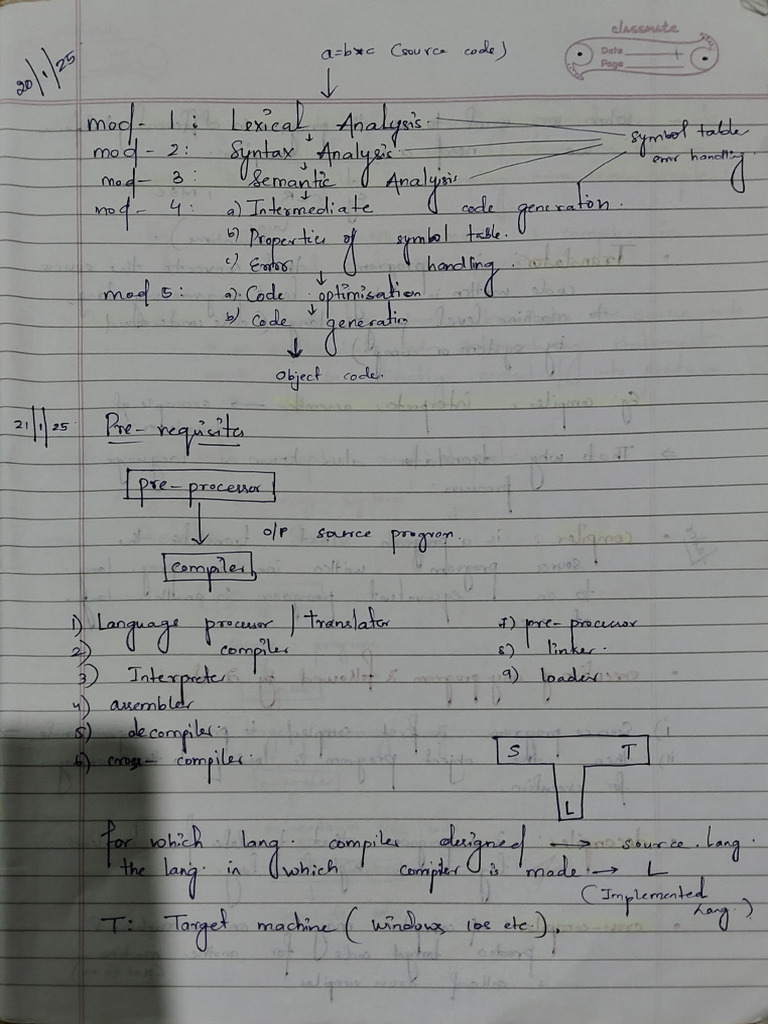 classmate
Date
Page
20/1/25
a=b*c (source code)
mod- 1: Lexical Analysis.
mod- 2: Syntax Analysis
symbol table
error handling
mod- 3 Semantic Analysis
mod- 4: a) Intermediate code generation.
b) Properties of symbol table.
c) Error handling.
mod 5: a). Code optimisation
b) code generation
object code.
21/1/25 Pre-requisite
pre-processor
O/P source program.
compiler
1) Language processor / translator
2) compiler
3) Interpreter
4) assembler
5) decompiler.
6) cross-compiler.
7) pre-processor
8) linker.
9) loader
S T
L
for which lang. compiler designed → source.lang.
the lang. in which compiler is made → L
(Implemented
lang.)
T: Target machine (windows ios etc.).